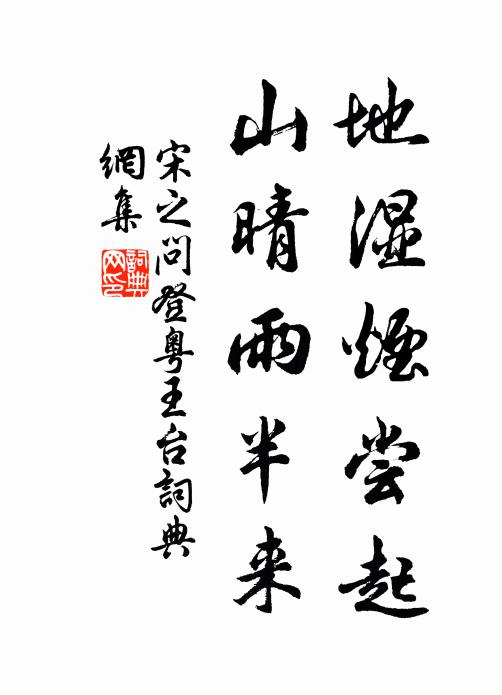 地湿煙尝起
山晴雨半来
宋之问登粤王台詞典
網集
詞典
网印